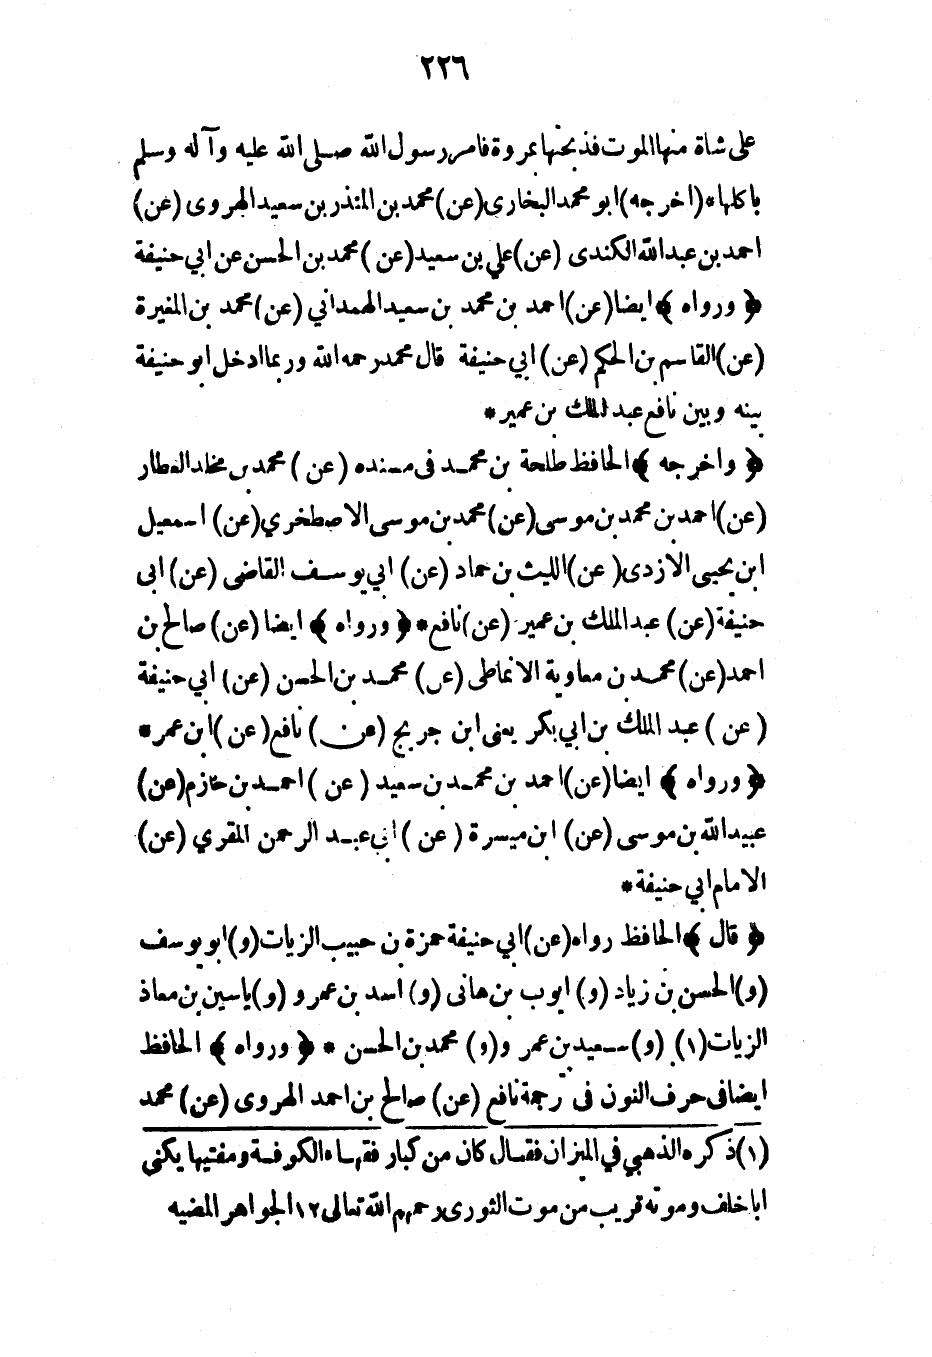 ٢٢٦
على شاة منها الموت فذبحتها بمروة فامر رسول الله صلى الله عليه وآله وسلم
باكلها * (اخرجه) ابو محمد البخارى (عن) محمد بن المنذر بن سعيد الهروى (عن)
احمد بن عبدالله الكندى (عن) علي بن سعيد (عن) محمد بن الحسن عن ابي حنيفة
﴿ ورواه ﴾ ايضا (عن) احمد بن محمد بن سعيد الهمداني (عن) محمد بن المغيرة
(عن) القاسم بن الحكم (عن) ابي حنيفة قال محمد رحمه الله وربما ادخل ابو حنيفة
بينه وبين نافع عبد الملك بن عمير *
﴿ واخرجه ﴾ الحافظ طلحة بن محمد فى مسنده (عن) محمد بن مخلد العطار
(عن) احمد بن محمد بن موسى (عن) محمد بن موسى الاصطخري (عن) اسمعيل
ابن يحيى الازدى (عن) الليث بن حماد (عن) ابي يوسف القاضى (عن) ابى
حنيفة (عن) عبد الملك بن عمير (عن) نافع * ﴿ ورواه ﴾ ايضا (عن) صالح بن
احمد (عن) محمد بن معاوية الانماطى (عن) محمد بن الحسن (عن) ابي حنيفة
(عن) عبد الملك بن ابي بكر يعنى ابن جريج (عن) نافع (عن) ابن عمر *
﴿ ورواه ﴾ ايضا (عن) احمد بن محمد بن سعيد (عن) احمد بن حازم (عن)
عبيد الله بن موسى (عن) ابن ميسرة (عن) ابي عبد الرحمن المقري (عن)
الامام ابي حنيفة *
﴿ قال ﴾ الحافظ رواه (عن) ابي حنيفة حمزة بن حبيب الزيات (و) ابو يوسف
(و) الحسن بن زياد (و) ايوب بن هانى (و) اسد بن عمرو (و) ياسين بن معاذ
الزيات (١) (و) سعيد بن عمرو (و) محمد بن الحسن * ﴿ ورواه ﴾ الحافظ
ايضا فى حرف النون فى ترجمة نافع (عن) صالح بن احمد الهروى (عن) محمد
(١) ذكره الذهبي في الميزان فقال كان من كبار فقهاء الكوفة ومفتيها يكنى
ابا خلف وموته قريب من موت الثورى رحمهم الله تعالى ١٢ الجواهر المضيه